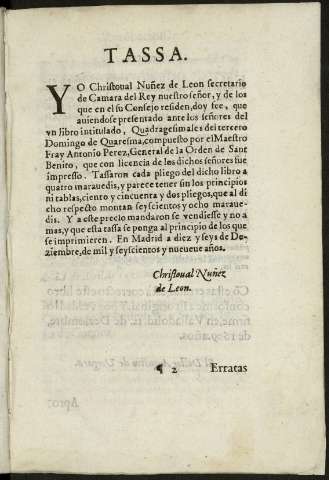 TASSA.
YO Christoual Nuñez de Leon secretario
de Camara del Rey nuestro señor, y de los
que en el su Consejo residen, doy fee, que
auiendose presentado ante los señores del
vn libro intitulado, Quadragesimales del tercero
Domingo de Quaresma, compuesto por el Maestro
Fray Antonio Perez, General de la Orden de Sant
Benito, que con licencia de los dichos señores fue
impresso. Tassaron cada pliego del dicho libro a
quatro marauedis, y parece tener sin los principios
ni tablas, ciento y cincuenta y dos pliegos, que al di
cho respecto montan seyscientos y ocho maraue-
dis. Y a este precio mandaron se vendiesse y no a
mas, y que esta tassa se ponga al principio de los que
se imprimieren. En Madrid a diez y seys de De-
ziembre, de mil y seyscientos y nueue años.
Christoual Nuñez
de Leon.
¶ 2 Erratas